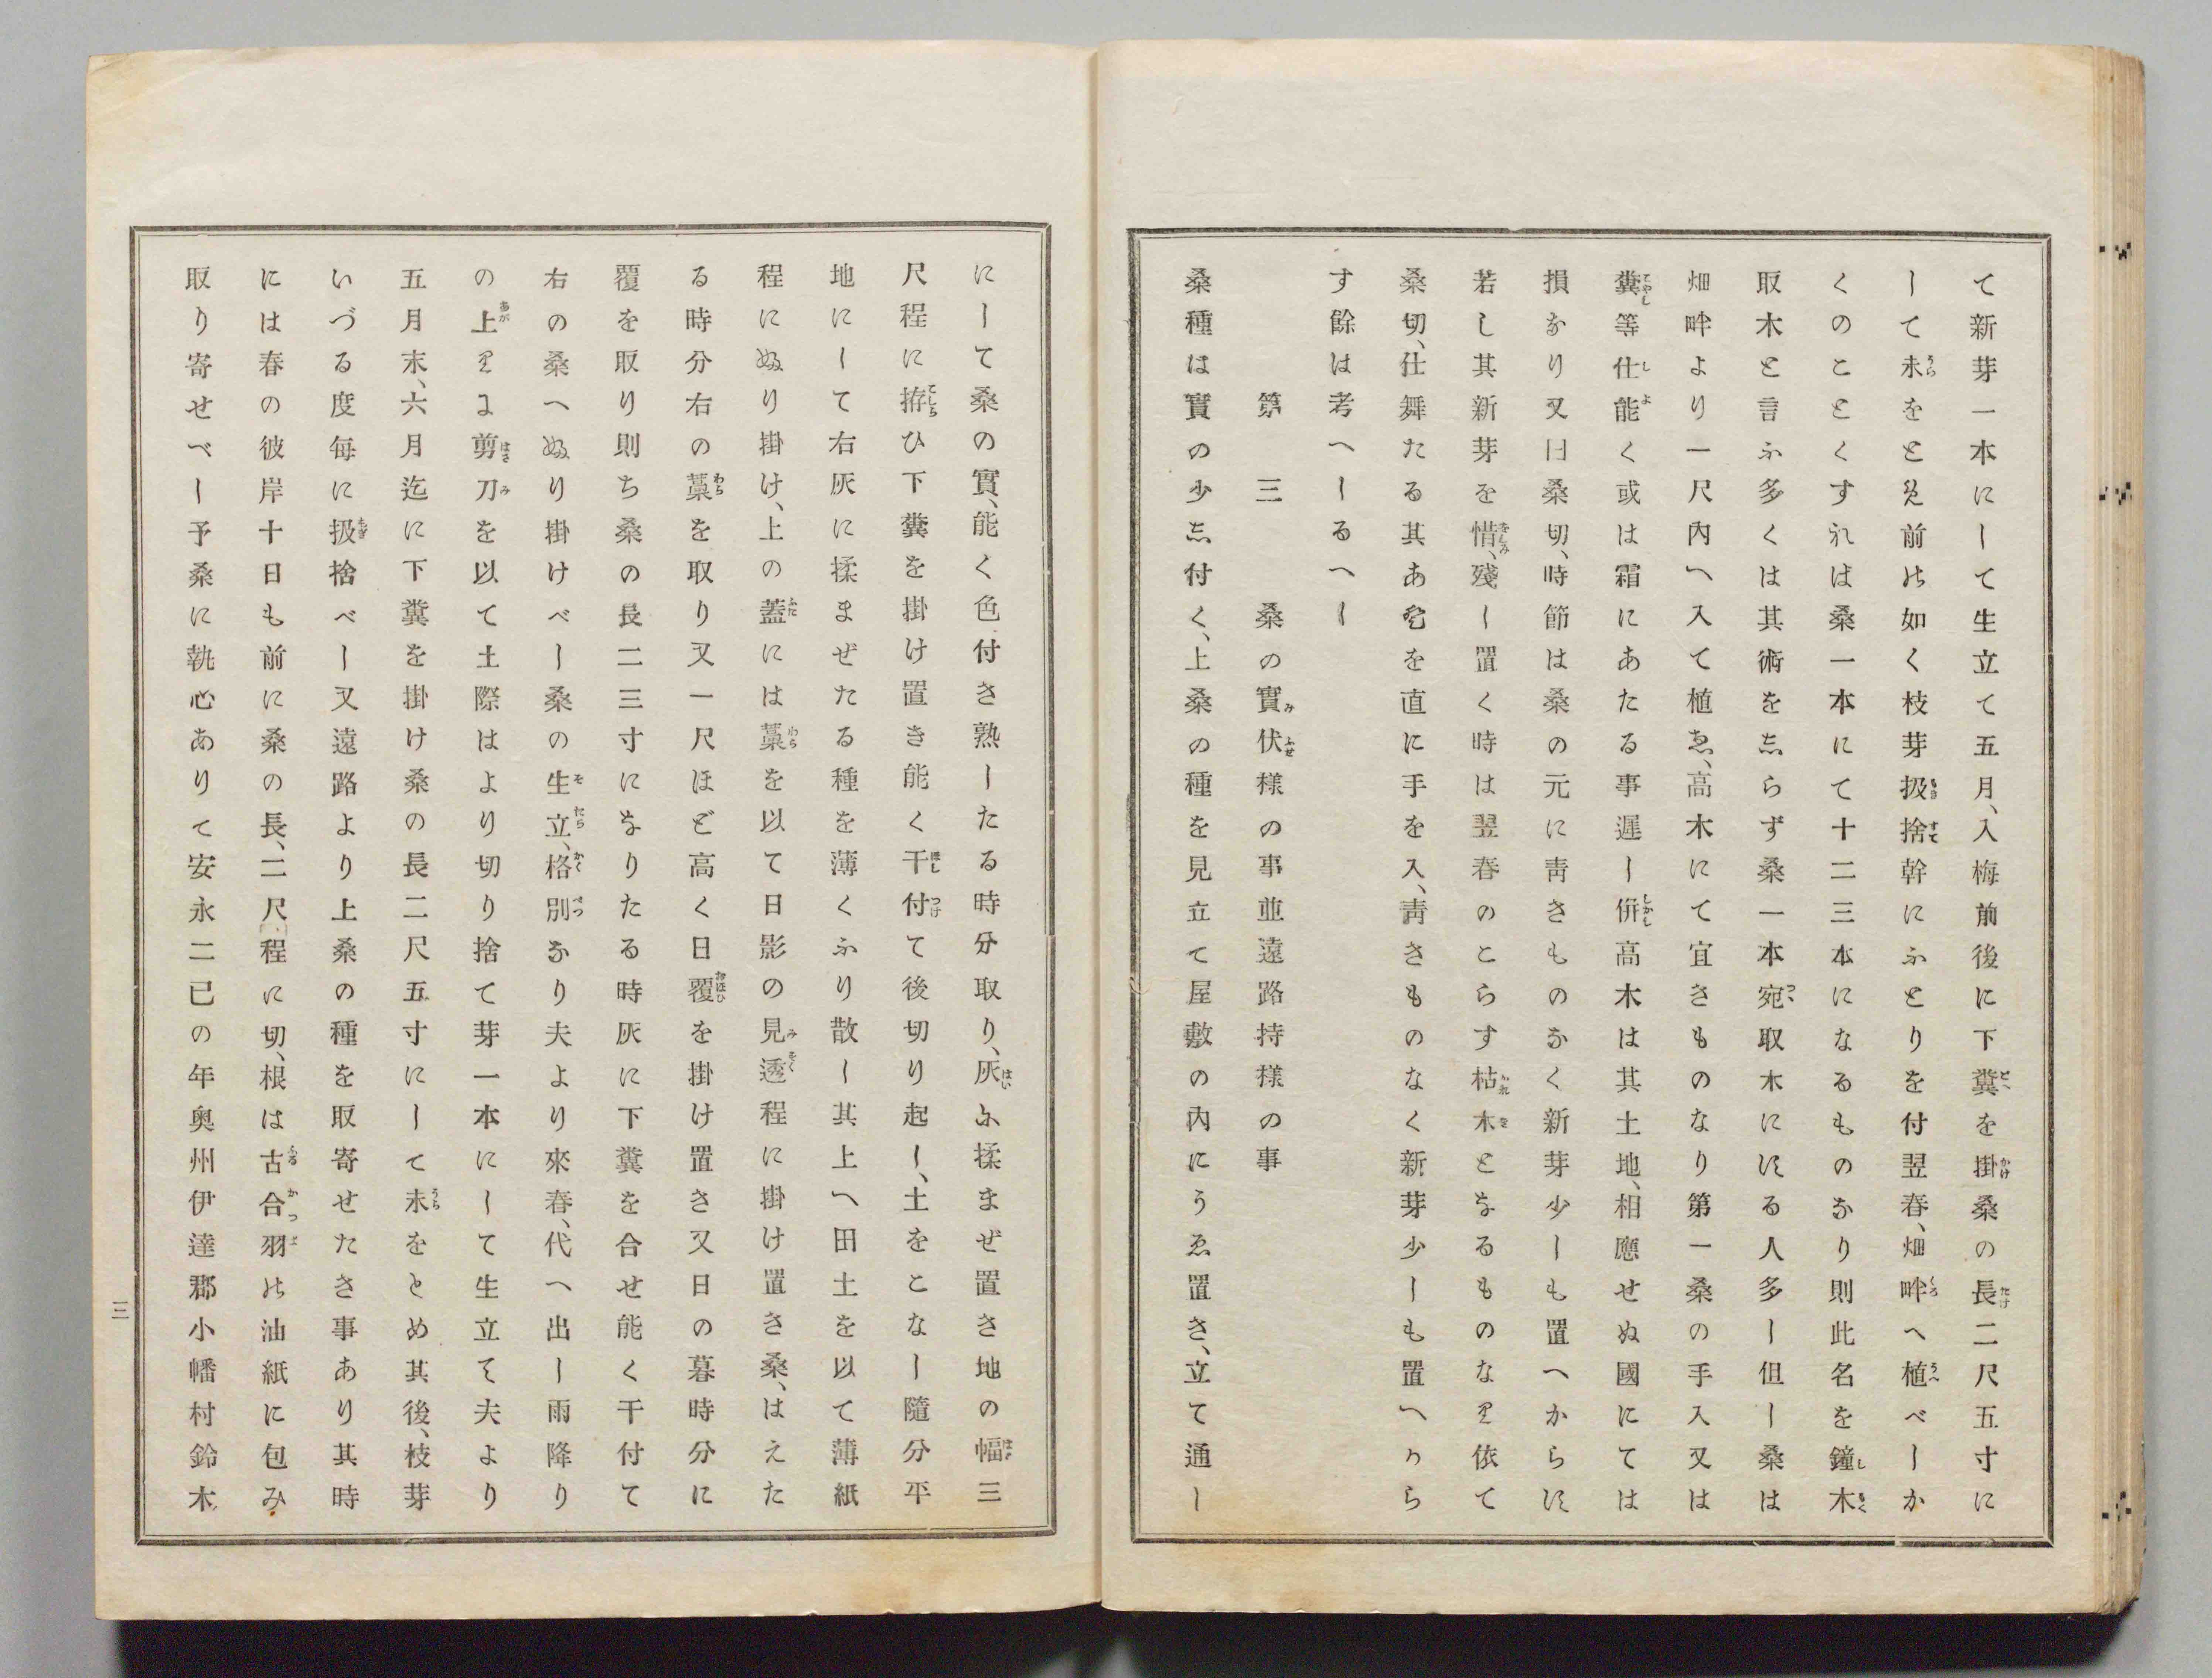 て新芽一本にして生立て五月、入梅前後に下糞を掛桑の長二尺五寸に
して末をとめ前の如く枝芽扱捨幹にふとりを付翌春、畑畔へ植べしか
くのことくすれば桑一本にて十二三本になるものなり則此名を鐘木
取木と言ふ多くは其術をしらず桑一本宛取木にする人多し但し桑は
畑畔より一尺内へ入て植ゑ、高木にて宜きものなり第一桑の手入又は
糞等仕能く或は霜にあたる事遲し併高木は其土地、相應せぬ國にては
損なり又旧桑切、時節は桑の元に靑きものなく新芽少しも置へからす
若し其新芽を惜、殘し置く時は翌春のこらす枯木となるものなり依て
桑切、仕舞たる其あとを直に手を入、靑きものなく新芽少しも置へから
す餘は考へしるへし
第三　桑の實伏樣の事並遠路持樣の事
桑種は實の少し付く、上桑の種を見立て屋敷の內にうゑ置き、立て通し
にして桑の實、能く色付き熟したる時分取り、灰に揉まぜ置き地の幅三
尺程に拵ひ下糞を掛け置き能く干付て後切り起し、土をこなし隨分平
地にして右灰に揉まぜたる種を薄くふり散し其上へ田土を以て薄紙
程にぬり掛け、上の蓋には藁を以て日影の見透程に掛け置き桑、はえた
る時分右の藁を取り又一尺ほど高く日覆を掛け置き又日の暮時分に
覆を取り則ち桑の長二三寸になりたる時灰に下糞を合せ能く干付て
右の桑へぬり掛けべし桑の生立、格別なり夫より來春、代へ出し雨降り
の上りに剪刀を以て土際はより切り捨て芽一本にして生立て夫より
五月末、六月迄に下糞を掛け桑の長二尺五寸にして末をとめ其後、枝芽
いづる度每に扱捨べし又遠路より上桑の種を取寄せたき事あり其時
には春の彼岸十日も前に桑の長、二尺程に切、根は古合羽の油紙に包み
取り寄せべし予桑に執心ありて安永二已の年奥州伊達郡小幡村鈴木
三